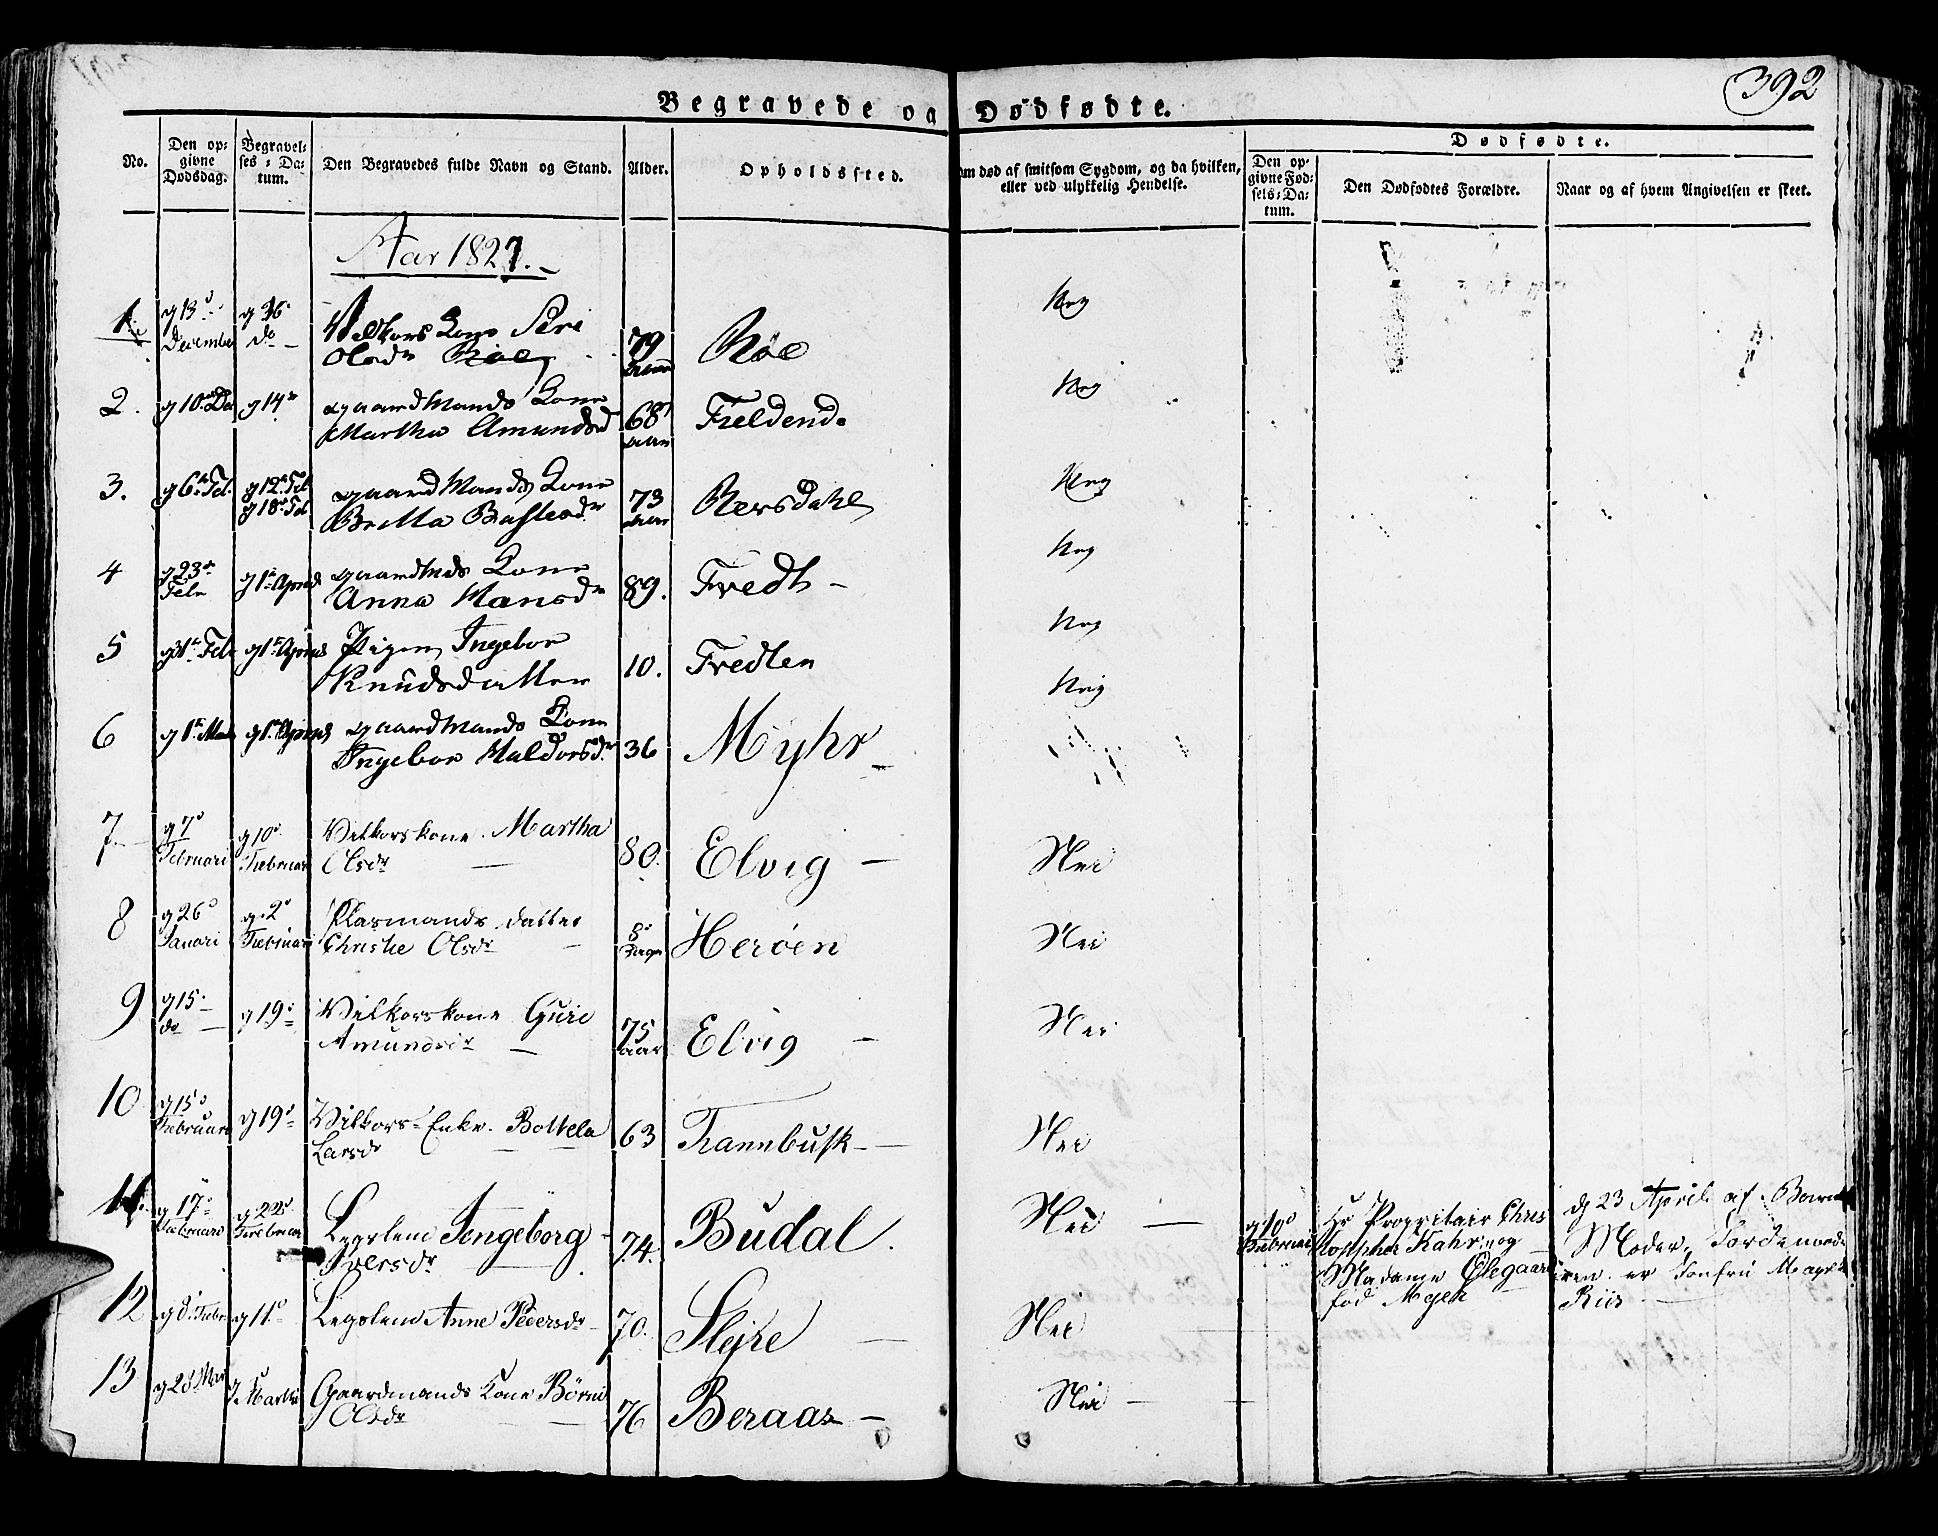 392
Begravede og Dødfødte.
No.
Den op-
givne
Dødsdag.
Begravel-
ses-Da-
tum.
Den Begravedes fulde Navn og Stand.
Alder.
Opholdssted.
Om død af smitsom Sygdom, og da hvilken,
eller ved ulykkelig Hendelse.
Dødfødte.
Den op-
givne Fød-
sels-Da-
tum.
Den Dødfødtes Forældre.
Naar og af hvem Angivelsen er skeet.
Aar 1827.
1. 13 December 16 do Vilkors Kone Siri
Olsdr 79 Røe Neg
2. 10 14 gaardMands Kone
Martha Amundsd 68 aar Fieldend. Neg
3. 6 Feb. 12 Feb
18 Feb gaardMands Kone
Britta 73 aar Rersdahl Neg
4 23
Febr 1 gaardMds Kone
Anna Hansdr 89. Fredh Neg
5 Febr 1 Pigen Ingebor
Knudsdatter 10. Fredlen Neg
6 1 1 gaardMands Kone
Ingebor Haldorsdr 36 Myhr Neig
7 7
Februari 10
Februari Vilkorskone Martha
Olsdr 80. Elvig Nei
8 26
Januari 2
Februari Plasmands datter
Christie Olsdr 8
Dage Herøen Nei
9 15
do 19 Vilkorskone Guri
Amundsdr 75
aar Elvig Nei
10 15
Februari 19 Vilkors-Enke Bottela
Larsdr 63 Trannbusk Nei
11. 17
Februari 22
Februari Legslem Ingeborg
Iversdr 74. Budal. Nei
10
Februari Hr Propritair Chris
topher Kahrs og
Madame Olegaard
fød Myen
dg 23 April af Barnets
Moder, Jordemode
ren er Jonfru
Riis
12 8 Febr 11 Legslem Anne Pedersdr 70. Slejre Nei
13 28 Martii Gaardmands Kone Børni
Olsdr 76 Beraas Nei